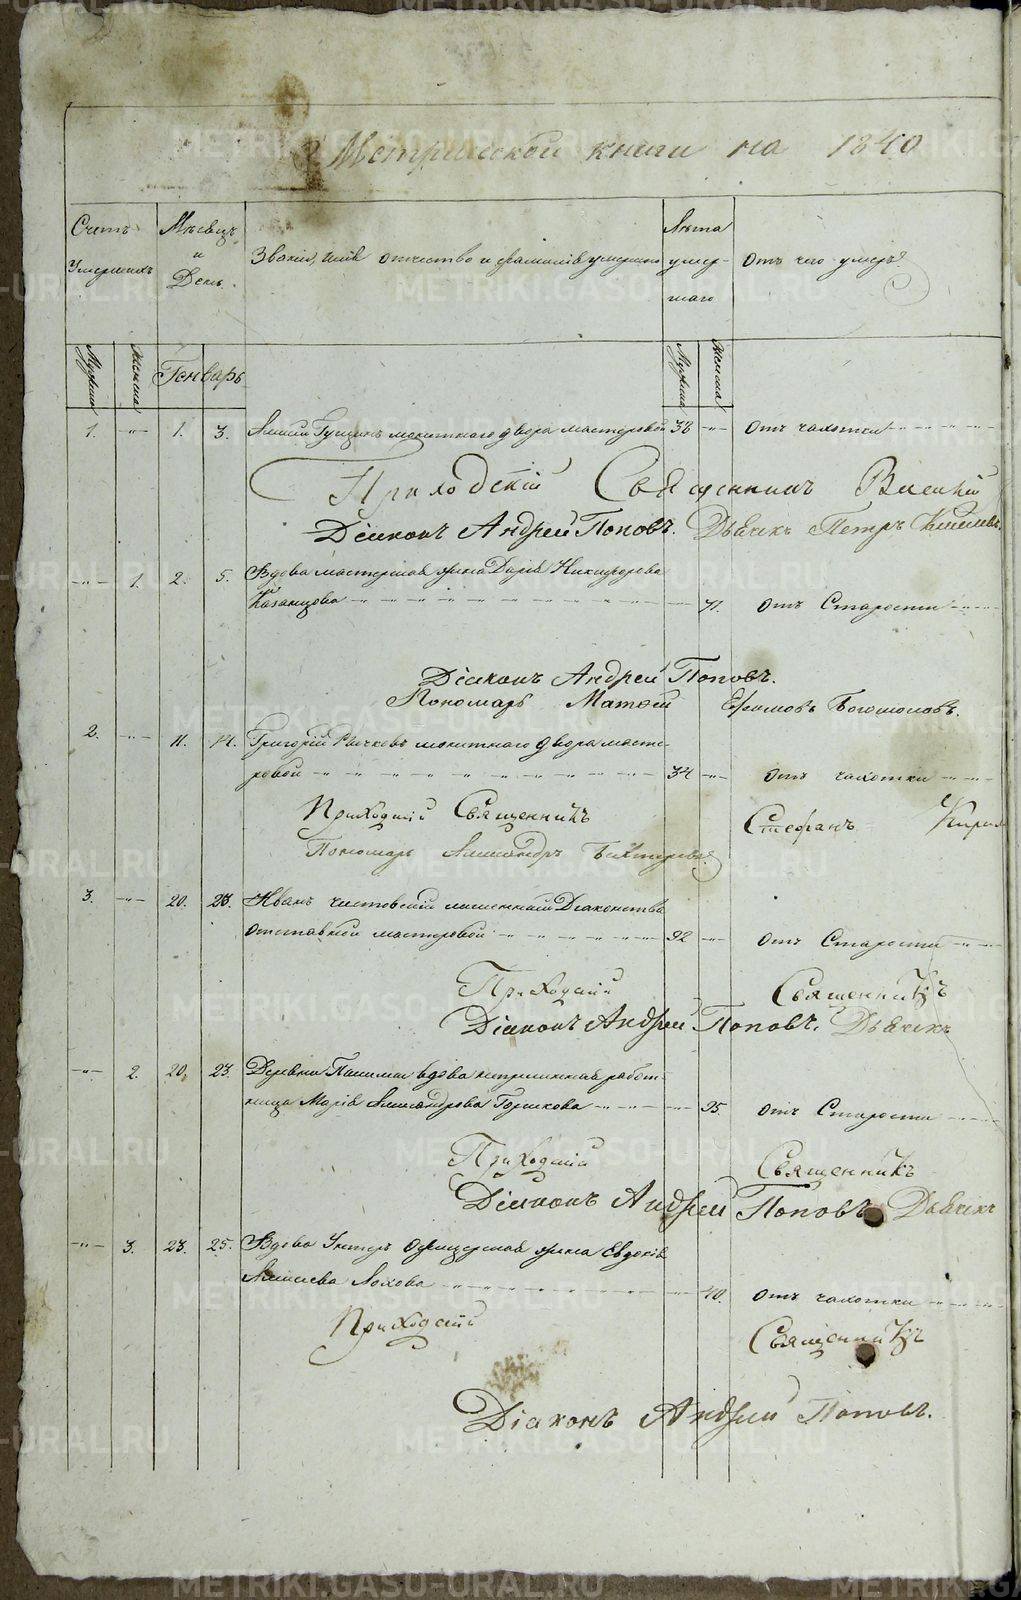 Метрической книги на 1840
Счетъ Умершихъ
Мѣсяцъ и День.
Званіе, имя отчество и фамилія умершаго
Лѣта умер- шаго
Отъ чего умеръ
Мужска Женска Генварь Мужска Женска
1. -"- 1. 3. Гущинъ монетнаго двора мастеровой 38 -"- Отъ чахотки
Приходскій Священникъ Василій
Діаконъ Андрей Поповъ. Дьячекъ Петръ
-"- 1. 2. 5. Вдова мастерская жена Дарья Никифорова
Казанцова 71. отъ Старости
Діаконъ Андрей Поповъ.
Пономарь Матѳей Ефимовъ Богомоловъ.
2. -"- 11. 14. Григорій Рычковъ монетнаго двора масте-
ровой 34 -"- Отъ чахотки
Приходскій Священникъ Стефанъ
Пономарь Александръ
3. -"- 20. 23. Иванъ лишенный Діаконства
отставной мастеровой 92 -"- отъ Старости
Приходскій Священникъ
Діаконъ Андрей Поповъ. Дьячекъ
-"- 2. 20. 23. Деревни вдова непременная работ-
ница Марія Александрова Горшкова 95. отъ Старости
Приходскій Священникъ
Діаконъ Андрей Поповъ Дьячекъ
-"- 3. 23. 25. Вдова Унтеръ Офицерская жена Евдокія
Алексеева 40. отъ чахотки
Приходскій Священникъ
Діаконъ Андрей Поповъ.
METRIKI.GASO-URAL.RU